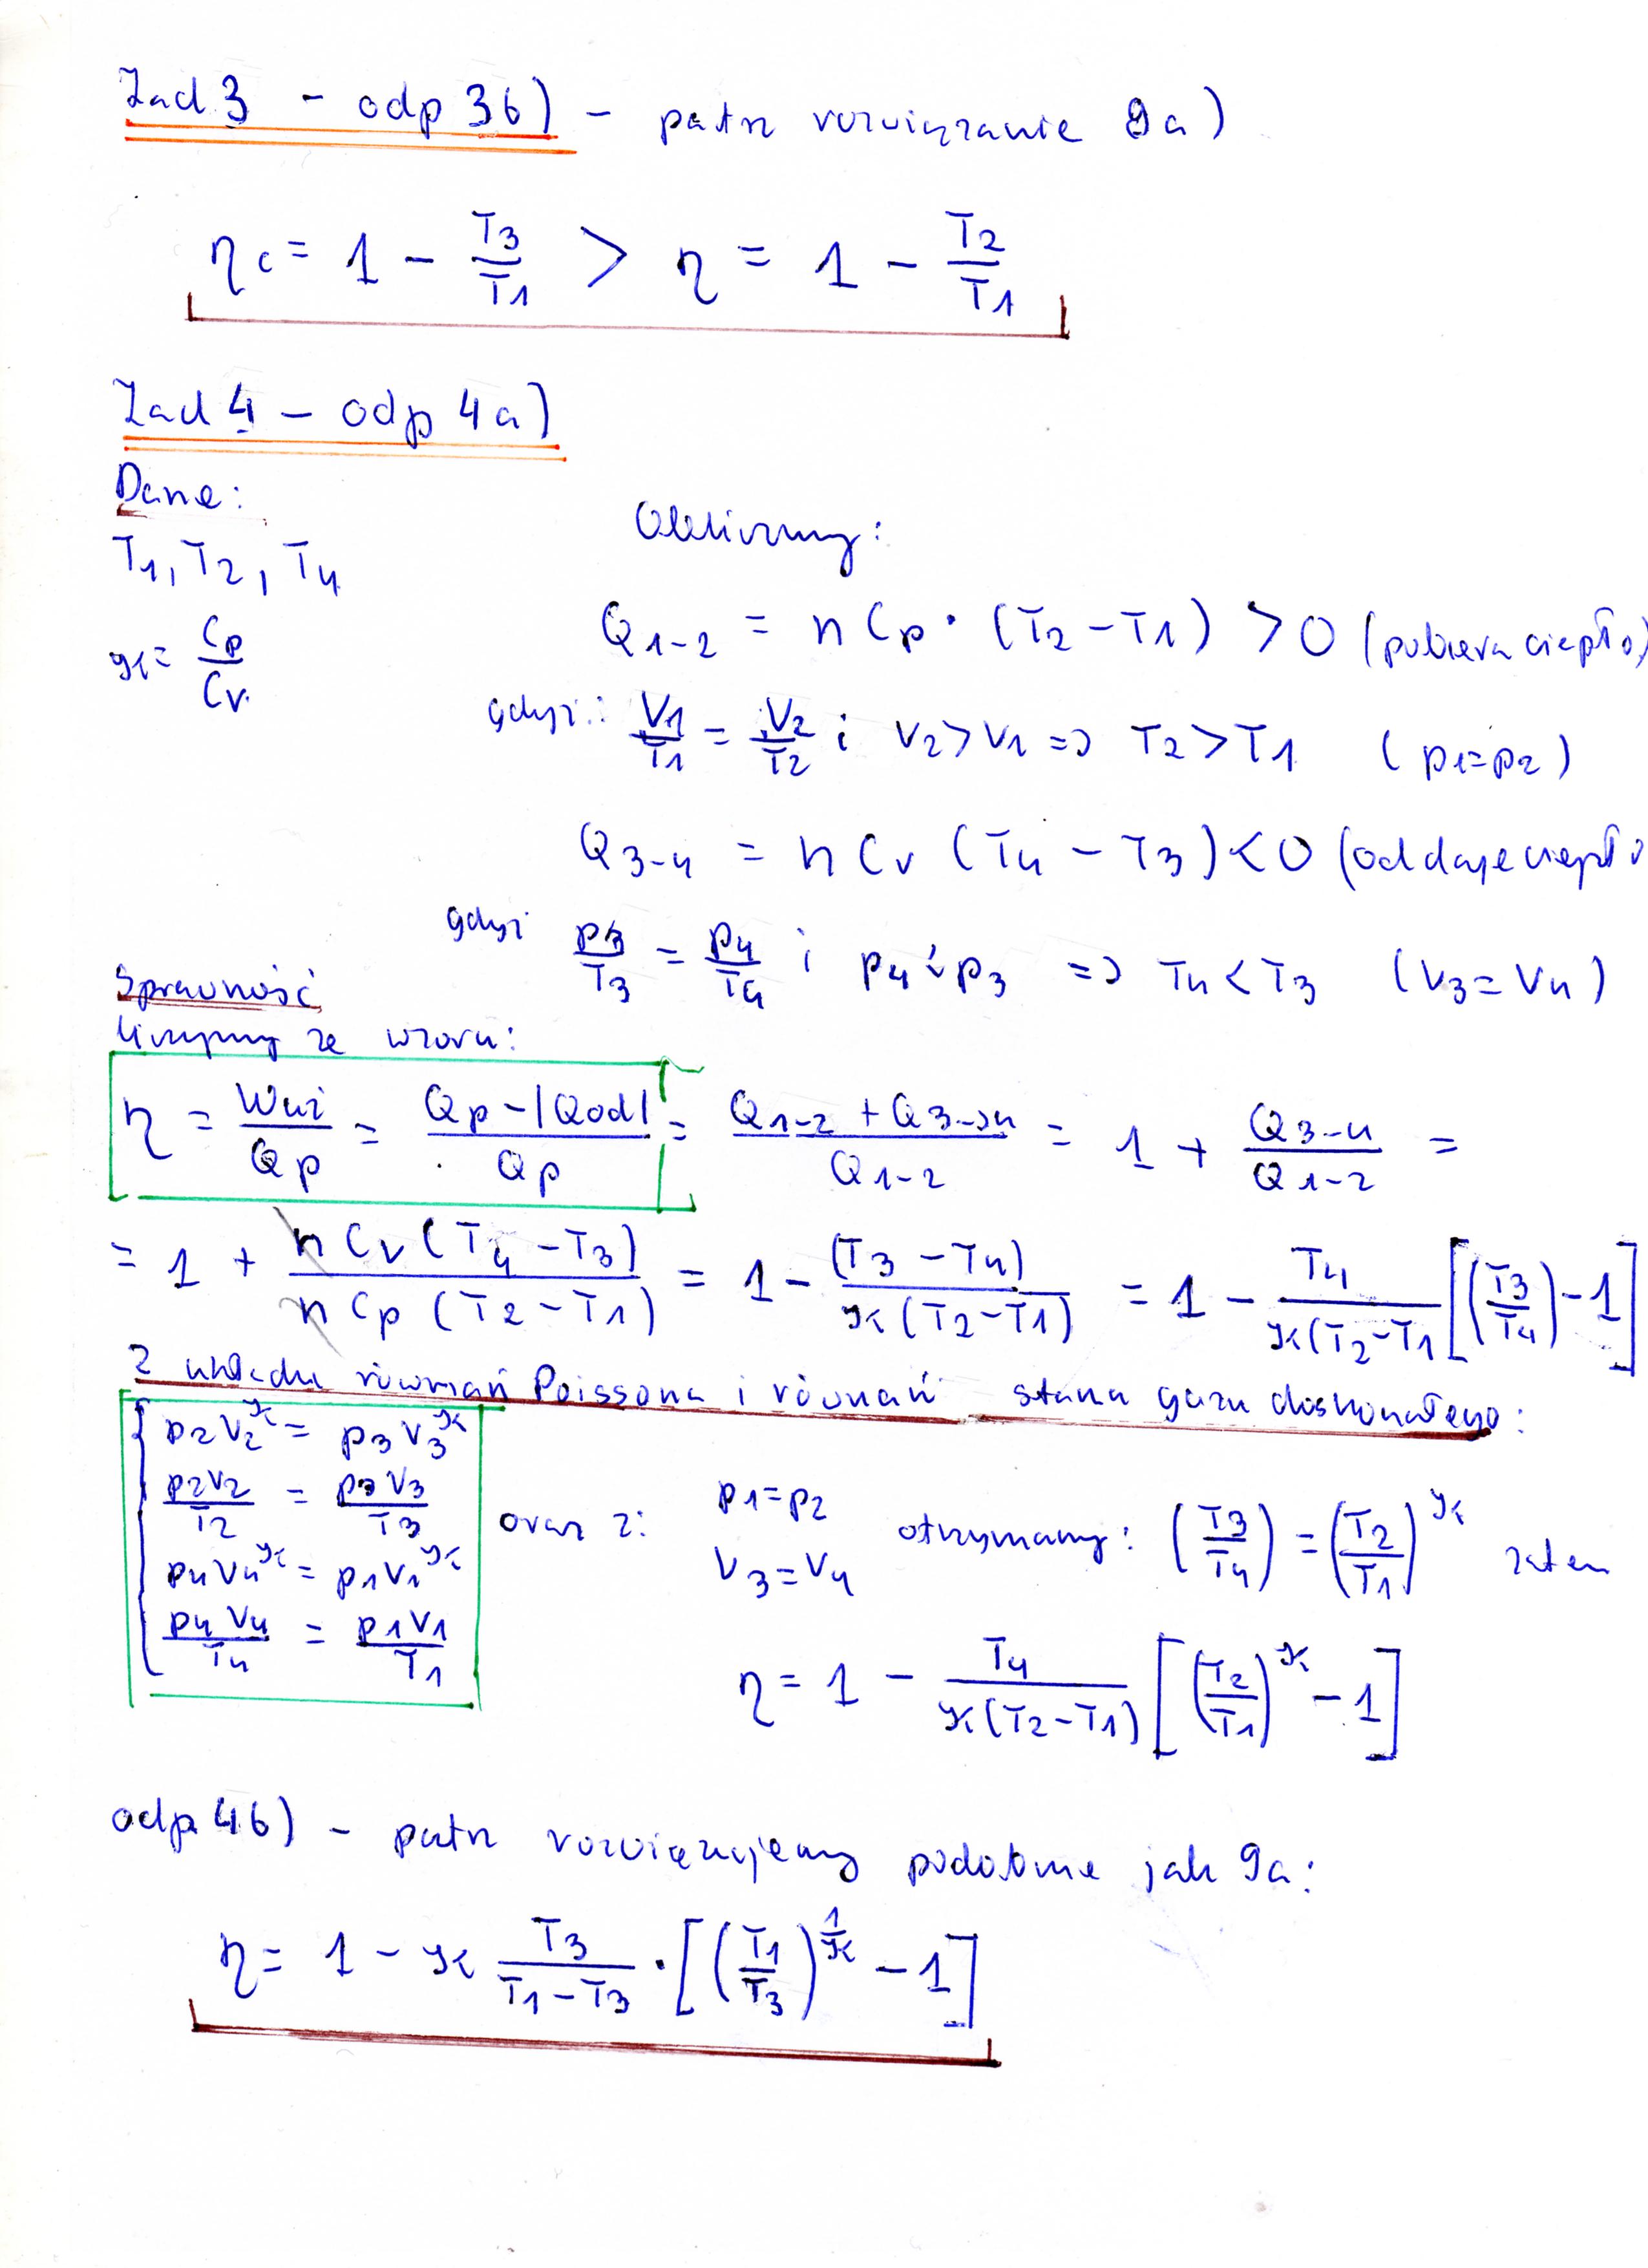 Zad 3 - odp 3b) - patrz rozwiązanie 9a)
ηc = 1 - T3/T1 > η = 1 - T2/T1
Zad 4 - odp 4a)
Dane:
T1, T2, T4
ϰ = Cp/Cv
Obliczmy:
Q1-2 = n Cp · (T2 - T1) > 0 (pobiera ciepło)
gdyż: V1/T1 = V2/T2 i V2 > V1 => T2 > T1 (p1=p2)
Q3-4 = n Cv (T4 - T3) < 0 (oddaje ciepło
gdyż p3/T3 = p4/T4 i p4 < p3 => T4 < T3 (V3 = V4)
Sprawność
liczymy ze wzoru:
η = Wuż/Qp = (Qp - |Qod|)/Qp = (Q1-2 + Q3->4)/Q1-2 = 1 + Q3-4/Q1-2 =
= 1 + n Cv (T4 - T3)/n Cp (T2 - T1) = 1 - (T3 - T4)/ϰ(T2 - T1) = 1 - T4/ϰ(T2 - T1 [(T3/T4) - 1]
Z układu równań Poissona i równań stanu gazu doskonałego:
p2V2^ϰ = p3V3^ϰ
p2V2/T2 = p3V3/T3
p4V4^ϰ = p1V1^ϰ
p4V4/T4 = p1V1/T1
oraz z: p1 = p2
V3 = V4
otrzymamy: (T3/T4) = (T2/T1)^ϰ zatem
η = 1 - T4/ϰ(T2 - T1) [(T2/T1)^ϰ - 1]
odp 4b) - patrz rozwiązujemy podobnie jak 9a:
η = 1 - ϰ T3/T1 - T3 · [(T1/T3)^1/ϰ - 1]